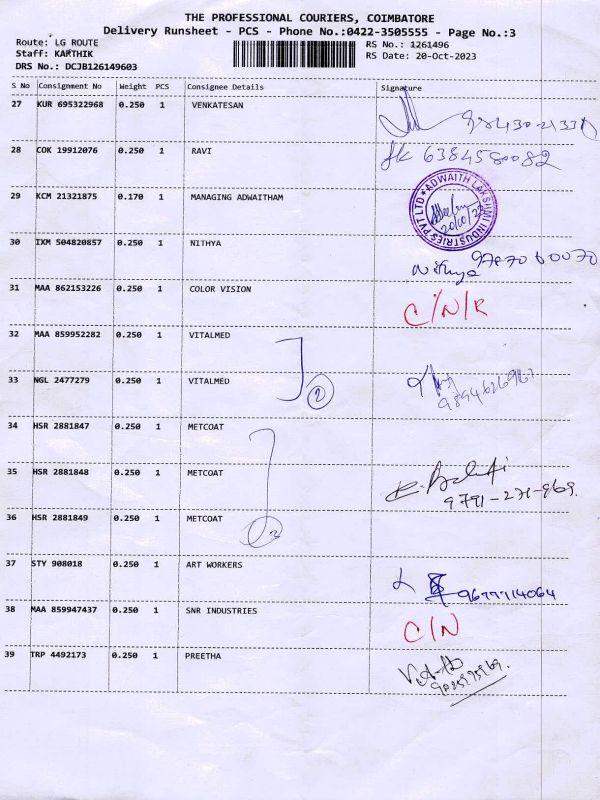 THE PROFESSIONAL COURIERS, COIMBATORE
Delivery Runsheet - PCS - Phone No.:0422-3505555 - Page No.:3
Route: LG ROUTE
Staff: KARTHIK
DRS No.: DCJB126149603
RS No.: 1261496
RS Date: 20-Oct-2023
S No Consignment No Weight PCS Consignee Details Signature
27 KUR 695322968 0.250 1 VENKATESAN
28 COK 19912076 0.250 1 RAVI 6384580082
29 KCM 21321875 0.170 1 MANAGING ADWAITHAM
ADWAITH LAKSHMI INDUSTRIES PVT LTD
20/10/23
30 IXM 504820857 0.250 1 NITHYA Nithya
31 MAA 862153226 0.250 1 COLOR VISION C/N/R
32 MAA 859952282 0.250 1 VITALMED
33 NGL 2477279 0.250 1 VITALMED 2
34 HSR 2881847 0.250 1 METCOAT
35 HSR 2881848 0.250 1 METCOAT
36 HSR 2881849 0.250 1 METCOAT
37 STY 908018 0.250 1 ART WORKERS 9677714064
38 MAA 859947437 0.250 1 SNR INDUSTRIES C/N
39 TRP 4492173 0.250 1 PREETHA